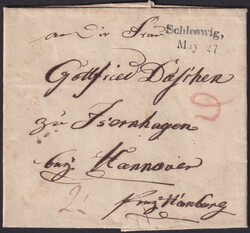 an die Frau
Schleswig,
May 27
Gottfried Däschen
zu Isernhagen
bey Hannover
frey Hamburg